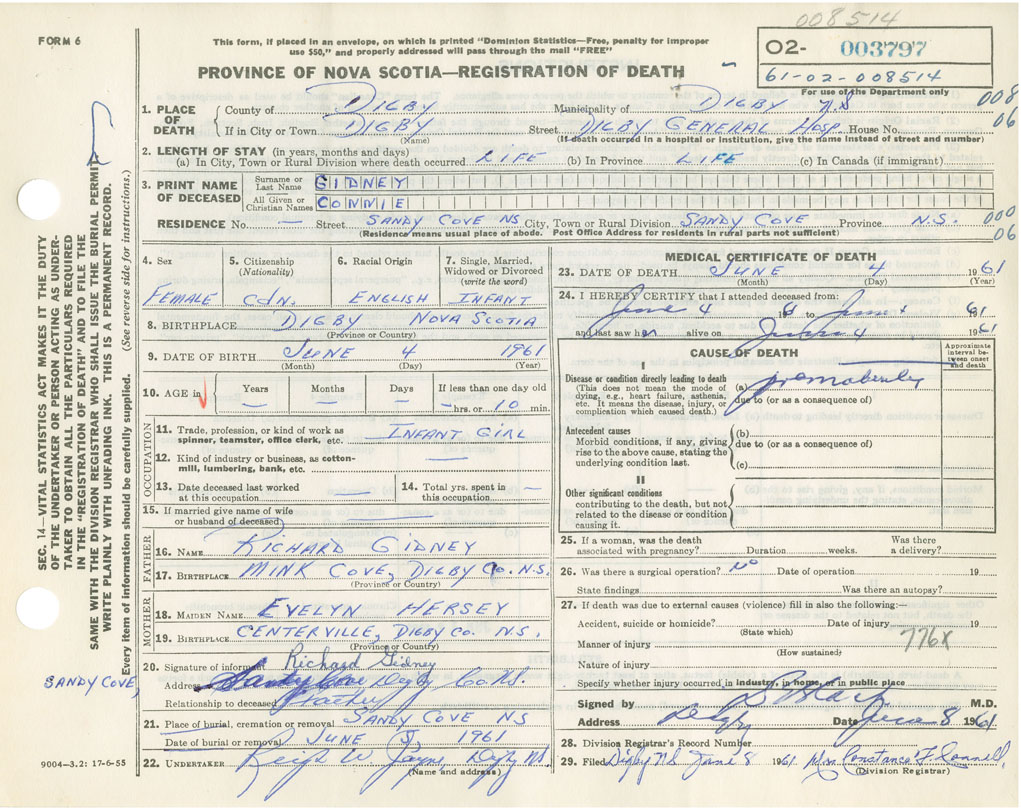 008514
FORM 6
This form, if placed in an envelope, on which is printed "Dominion Statistics—Free, penalty for improper
use $50," and properly addressed will pass through the mail "FREE"
02- 003797
61-02-008514
For use of the Department only
PROVINCE OF NOVA SCOTIA—REGISTRATION OF DEATH
1. PLACE OF DEATH
County of DIGBY Municipality of DIGBY N.S
008
06
If in City or Town DIGBY Street DIGBY GENERAL HOSP House No.
(Name) (If death occurred in a hospital or institution, give the name instead of street and number)
2. LENGTH OF STAY (in years, months and days)
(a) In City, Town or Rural Division where death occurred LIFE (b) In Province LIFE (c) In Canada (if immigrant)
3. PRINT NAME OF DECEASED
Surname or Last Name GIDNEY
All Given or Christian Names CONNIE
RESIDENCE No. — Street SANDY COVE NS City, Town or Rural Division SANDY COVE Province N.S.
000
06
(Residence means usual place of abode. Post Office Address for residents in rural parts not sufficient)
4. Sex
FEMALE
5. Citizenship (Nationality)
CDN.
6. Racial Origin
ENGLISH
7. Single, Married, Widowed or Divorced (write the word)
INFANT
8. BIRTHPLACE DIGBY NOVA SCOTIA
(Province or Country)
9. DATE OF BIRTH JUNE 4 1961
(Month) (Day) (Year)
10. AGE in Years — Months — Days — If less than one day old
— hrs. or 10 min.
OCCUPATION
11. Trade, profession, or kind of work as
spinner, teamster, office clerk, etc. INFANT GIRL
12. Kind of industry or business, as cotton-
mill, lumbering, bank, etc. —
13. Date deceased last worked
at this occupation —
14. Total yrs. spent in
this occupation —
15. If married give name of wife
or husband of deceased —
FATHER
16. NAME RICHARD GIDNEY
17. BIRTHPLACE MINK COVE, DIGBY CO. N.S.
(Province or Country)
MOTHER
18. MAIDEN NAME EVELYN HERSEY
19. BIRTHPLACE CENTERVILLE, DIGBY CO. N.S.
(Province or Country)
20. Signature of informant Richard Gidney
SANDY COVE, Address Sandy Cove Digby Co. NS.
Relationship to deceased Father
21. Place of burial, cremation or removal SANDY COVE NS
Date of burial or removal JUNE 5 1961
22. UNDERTAKER
(Name and address)
MEDICAL CERTIFICATE OF DEATH
23. DATE OF DEATH JUNE 4 1961
(Month) (Day) (Year)
24. I HEREBY CERTIFY that I attended deceased from:
June 4 1961 to June 4 1961
and last saw her alive on June 4 1961
CAUSE OF DEATH
Approximate interval between onset and death
I
Disease or condition directly leading to death
(This does not mean the mode of
dying, e.g., heart failure, asthenia,
etc. It means the disease, injury, or
complication which caused death.)
(a) prematurity
due to (or as a consequence of)
Antecedent causes
Morbid conditions, if any, giving
rise to the above cause, stating the
underlying condition last.
(b)
due to (or as a consequence of)
(c)
II
Other significant conditions
contributing to the death, but not
related to the disease or condition
causing it.
25. If a woman, was the death Was there
associated with pregnancy? Duration weeks. a delivery?
26. Was there a surgical operation? No Date of operation 19
State findings Was there an autopsy?
27. If death was due to external causes (violence) fill in also the following:—
Accident, suicide or homicide? Date of injury 19
(State which)
776X
Manner of injury
(How sustained)
Nature of injury
Specify whether injury occurred in industry, in home, or in public place
Signed by M.D.
Address Digby Date June 8 1961
28. Division Registrar's Record Number
29. Filed Digby NS June 8 1961 Mrs Constance F. Connell
(Division Registrar)
SEC. 14—VITAL STATISTICS ACT MAKES IT THE DUTY
OF THE UNDERTAKER OR PERSON ACTING AS UNDER-
TAKER TO OBTAIN ALL THE PARTICULARS REQUIRED
IN THE "REGISTRATION OF DEATH" AND TO FILE THE
SAME WITH THE DIVISION REGISTRAR WHO SHALL ISSUE THE BURIAL PERMIT
WRITE PLAINLY WITH UNFADING INK. THIS IS A PERMANENT RECORD.
Every item of information should be carefully supplied. (See reverse side for instructions.)
9004-3.2: 17-6-55